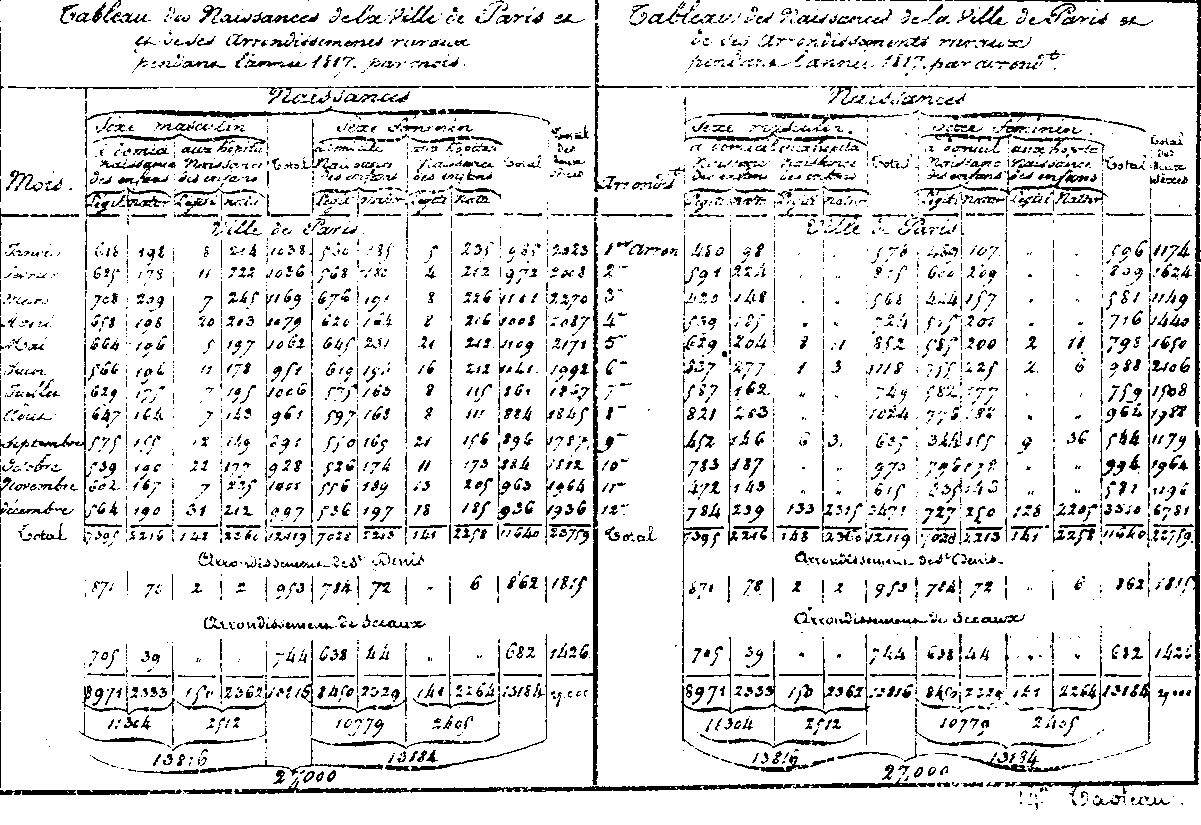 Tableau des Naissances de la Ville de Paris et
et de ses Arrondissemens ruraux
pendant l'année 1817. par mois.
Naissances
Sexe masculin Sexe féminin Total des deux sexes
à domicile aux hôpita Total à domicile aux hôpitau Total
Naissance des enfans Naissance des enfans Naissance des enfans Naissance des enfans
Mois. Légit natur Légit natu Légit natur Légit natu
Ville de Paris
Janvier 618 198 8 214 1038 185 5 235 985 2023
625 178 11 222 1036 568 4 212 972 2008
Mars 708 209 7 245 1169 676 191 8 226 1101 2270
658 198 20 203 1079 620 164 8 216 1008 2087
Mai 664 196 5 197 1062 645 231 21 212 1109 2171
Juin 566 196 11 178 951 619 16 212 1992
Juillet 629 175 7 195 1006 575 163 8 115 861 1867
Août 647 164 7 143 961 597 168 8 111 884 1845
Septembre 575 155 12 149 891 550 169 21 156 896 1787
Octobre 539 190 22 177 928 526 174 11 173 884 1812
Novembre 602 167 7 225 1001 556 189 13 205 963 1964
décembre 564 190 31 212 997 536 197 18 185 936 1936
Total 7395 2216 148 2360 12119 7028 2213 141 2258 11640 23759
Arrondissement de St Denis
871 78 2 2 953 784 72 " 6 862 1815
Arrondissement de Sceaux
705 39 " " 744 638 44 " " 682 1426
8971 2333 150 2362 13816 8450 2329 141 2264 13184 27,000
11304 2512 10779 2405
13816 13184
27,000
Tableau des Naissances de la Ville de Paris et
de ses Arrondissements ruraux
pendant l'année 1817. par arrondt.
Naissances
Sexe masculin. Sexe féminin. Total des deux sexes
à domicil aux hopita Total à domicil aux hopita Total
Naissance des enfans naissance des enfans Naissance des enfans Naissance des enfans
Arrondt Légit nat Légit natur Légit natur Légit Natur
Ville de Paris
1er Arron 480 98 " " 578 107 " " 596 1174
2e 591 224 " " 815 600 209 " " 809 1624
3e 420 148 " " 568 424 157 " " 581 1149
4e 539 185 " " 724 515 201 " " 716 1440
5e 629 204 8 11 852 585 200 2 11 798 1650
6e 837 277 1 3 1118 755 225 2 6 988 2106
7e 587 162 749 582 177 759 1508
8e 821 203 1024 776 188 " " 964 1988
9e 452 146 6 31 635 344 155 9 36 544 1179
10e 783 187 " 970 796 198 " " 994 1964
11e 472 143 " 615 " " 581 1196
12e 784 239 133 2315 3471 727 250 128 2205 3310 6781
Total 7395 2216 148 2360 12119 7028 2213 141 2258 11640 23759
Arrondissement de St Denis.
871 78 2 2 953 784 72 " 6 862 1815
Arrondissement de Sceaux
705 39 " " 744 638 44 " " 682 1426
8971 2333 150 2362 13816 8450 2329 141 2264 13184 27,000
11304 2512 10779 2405
13816 13184
27,000
Tableau.